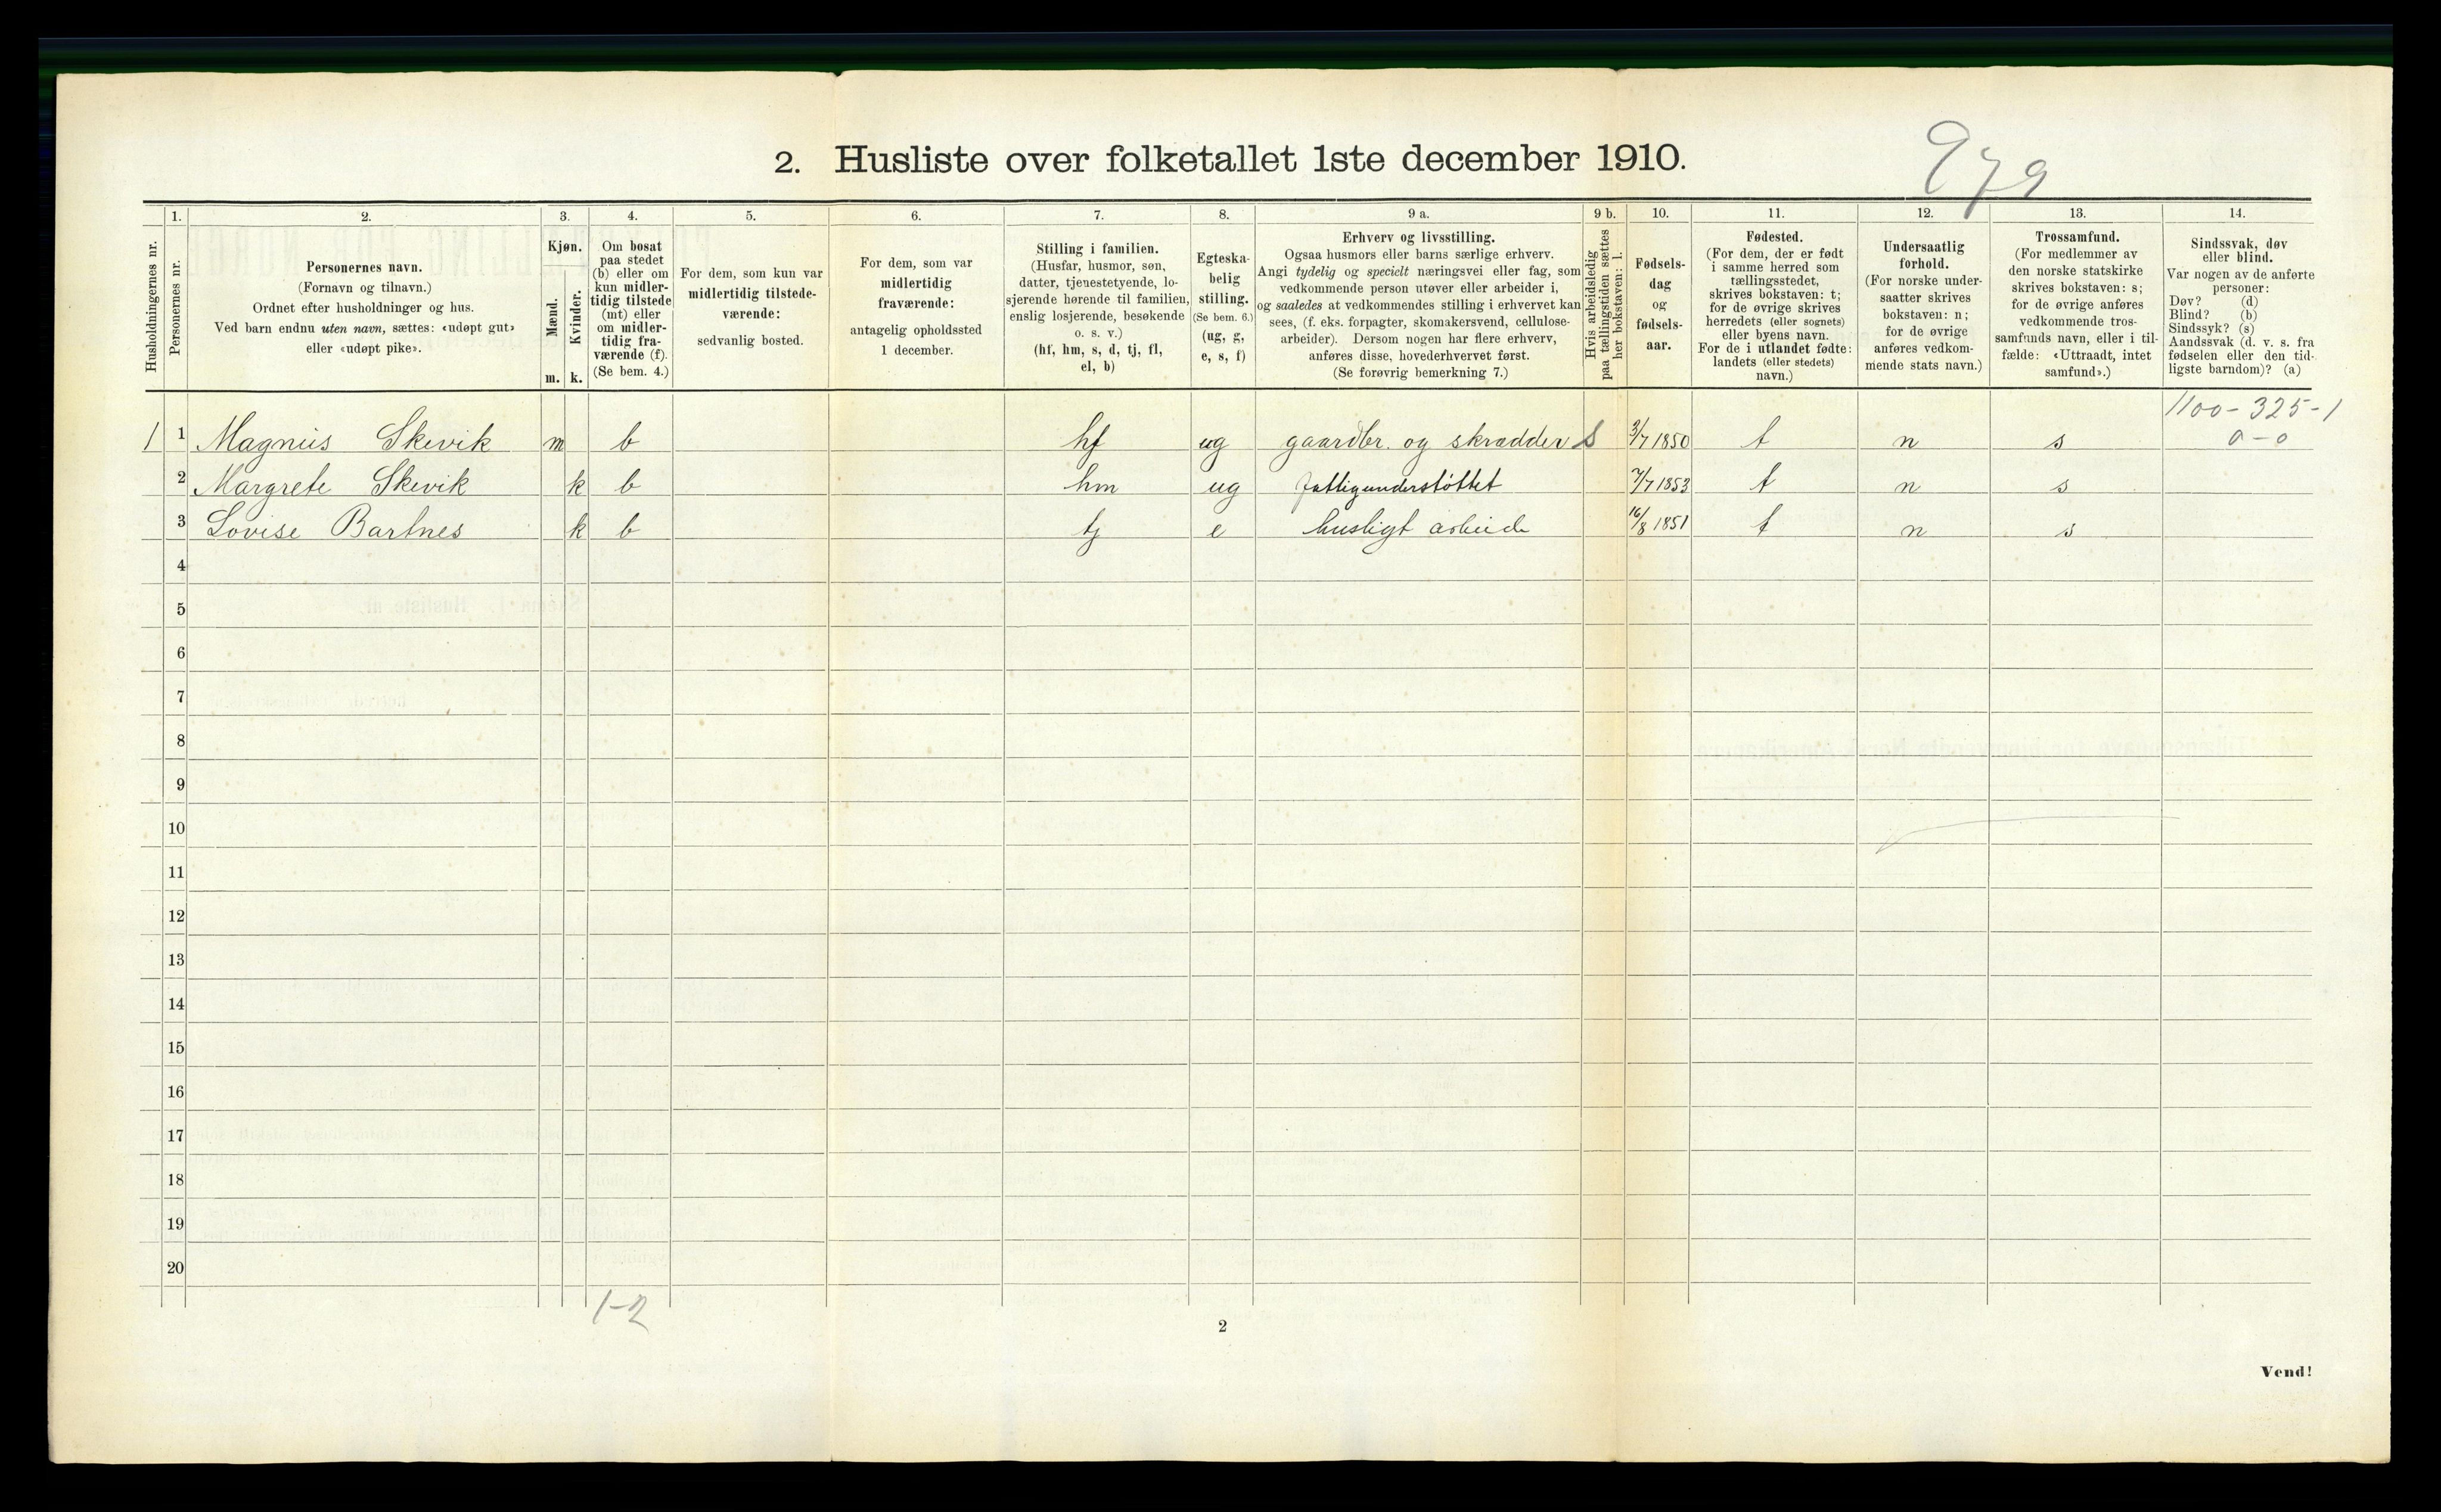 979
2. Husliste over folketallet 1ste december 1910.
Husholdningernes nr.
1. Personernes nr.
2. Personernes navn.
(Fornavn og tilnavn.)
Ordnet efter husholdninger og hus.
Ved barn endnu uten navn, sættes: «udøpt gut»
eller «udøpt pike».
3. Kjøn.
Mænd. m.
Kvinder. k.
4. Om bosat
paa stedet
(b) eller om
kun midler-
tidig tilstede
(mt) eller
om midler-
tidig fra-
værende (f).
(Se bem. 4.)
5. For dem, som kun var
midlertidig tilstede-
værende:
sedvanlig bosted.
6. For dem, som var
midlertidig
fraværende:
antagelig opholdssted
1 december.
7. Stilling i familien.
(Husfar, husmor, søn,
datter, tjenestetyende, lo-
sjerende hørende til familien,
enslig losjerende, besøkende
o. s. v.)
(hf, hm, s, d, tj, fl,
el, b)
8. Egteska-
belig
stilling.
(Se bem. 6.)
(ug, g,
e, s, f)
9 a. Erhverv og livsstilling.
Ogsaa husmors eller barns særlige erhverv.
Angi tydelig og specielt næringsvei eller fag, som
vedkommende person utøver eller arbeider i,
og saaledes at vedkommendes stilling i erhvervet kan
sees, (f. eks. forpagter, skomakersvend, cellulose-
arbeider). Dersom nogen har flere erhverv,
anføres disse, hovederhvervet først.
(Se forøvrig bemerkning 7.)
9 b. Hvis arbeidsledig
paa tællingstiden sættes
her bokstaven: l.
10. Fødsels-
dag
og
fødsels-
aar.
11. Fødested.
(For dem, der er født
i samme herred som
tællingsstedet,
skrives bokstaven: t;
for de øvrige skrives
herredets (eller sognets)
eller byens navn.
For de i utlandet fødte:
landets (eller stedets)
navn.)
12. Undersaatlig
forhold.
(For norske under-
saatter skrives
bokstaven: n;
for de øvrige
anføres vedkom-
mende stats navn.)
13. Trossamfund.
(For medlemmer av
den norske statskirke
skrives bokstaven: s;
for de øvrige anføres
vedkommende tros-
samfunds navn, eller i til-
fælde: «Uttraadt, intet
samfund».)
14. Sindssvak, døv
eller blind.
Var nogen av de anførte
personer:
Døv? (d)
Blind? (b)
Sindssyk? (s)
Aandssvak (d. v. s. fra
fødselen eller den tid-
ligste barndom)? (a)
1100-325-1
0-0
1 1 Magnus Skevik m b hf ug gaardbr. og skrædder S 3/7 1850 t n s
2 Margrete Skevik k b hm ug fattigunderstøttet 7/7 1853 t n s
3 Lovise Bartnes k b tj e husligt arbeide 16/8 1851 t n s
4
5
6
7
8
9
10
11
12
13
14
15
16
17
18
19
20
1-2
2
Vend!